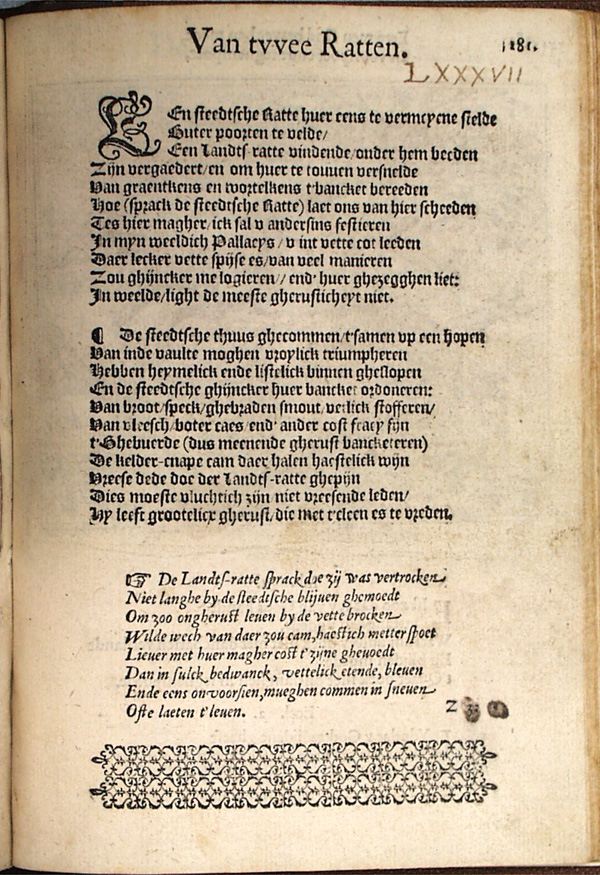 Van tvvee Ratten.
181.
LXXXVII
EEn steedtsche Ratte huer eens te vermeyene stelde
Buter poorten te velde/
Een Landts-ratte vindende/onder hem beeden
Zijn vergaedert/en om huer te touuen versnelde
Van graentkens en wortelkens t'bancket bereeden
Hoe (sprack de steedtsche Ratte) laet ons van hier scheeden
Tes hier magher/ick sal v andersins festieren
In myn weeldich Pallaeys/v int vette tot leeden
Daer lecker vette spijse es/van veel manieren
Zou ghijncker me logieren// end' huer ghezegghen liet:
In weelde/light de meeste gherusticheyt niet.
¶ De steedtsche thuus ghecommen/t'samen vp een hopen
Van inde vaulte moghen vroylick triumpheren
Hebben heymelick ende listelick binnen gheslopen
En de steedtsche ghijncker huer bancket ordoneren:
Van broot/speck/ghebraden smout/vetlick stofferen/
Van vleesch/boter caes/end' ander cost fraey fijn
t'Ghebuerde (dus meenende gherust bancketeren)
De kelder-cnape cam daer halen haestelick wijn
Vreese dede doe der Landts-ratte ghepijn
Dies moeste vluchtich zijn niet vreesende leden/
Hy leeft grootelicx gherust/die met t'cleen es te vreden.
☞ De Landts-ratte sprack doe zij was vertrocken
Niet langhe by de steedtsche blijuen ghemoedt
Om zoo ongherust leuen by de vette brocken
Wilde wech van daer zou cam, haestich metter spoet
Lieuer met huer magher cost t'zijne gheuoedt
Dan in sulck bedwanck, vettelick etende, bleuen
Ende eens onvoorsien, mueghen commen in sneuen
Ofte laeten t'leuen.
Z